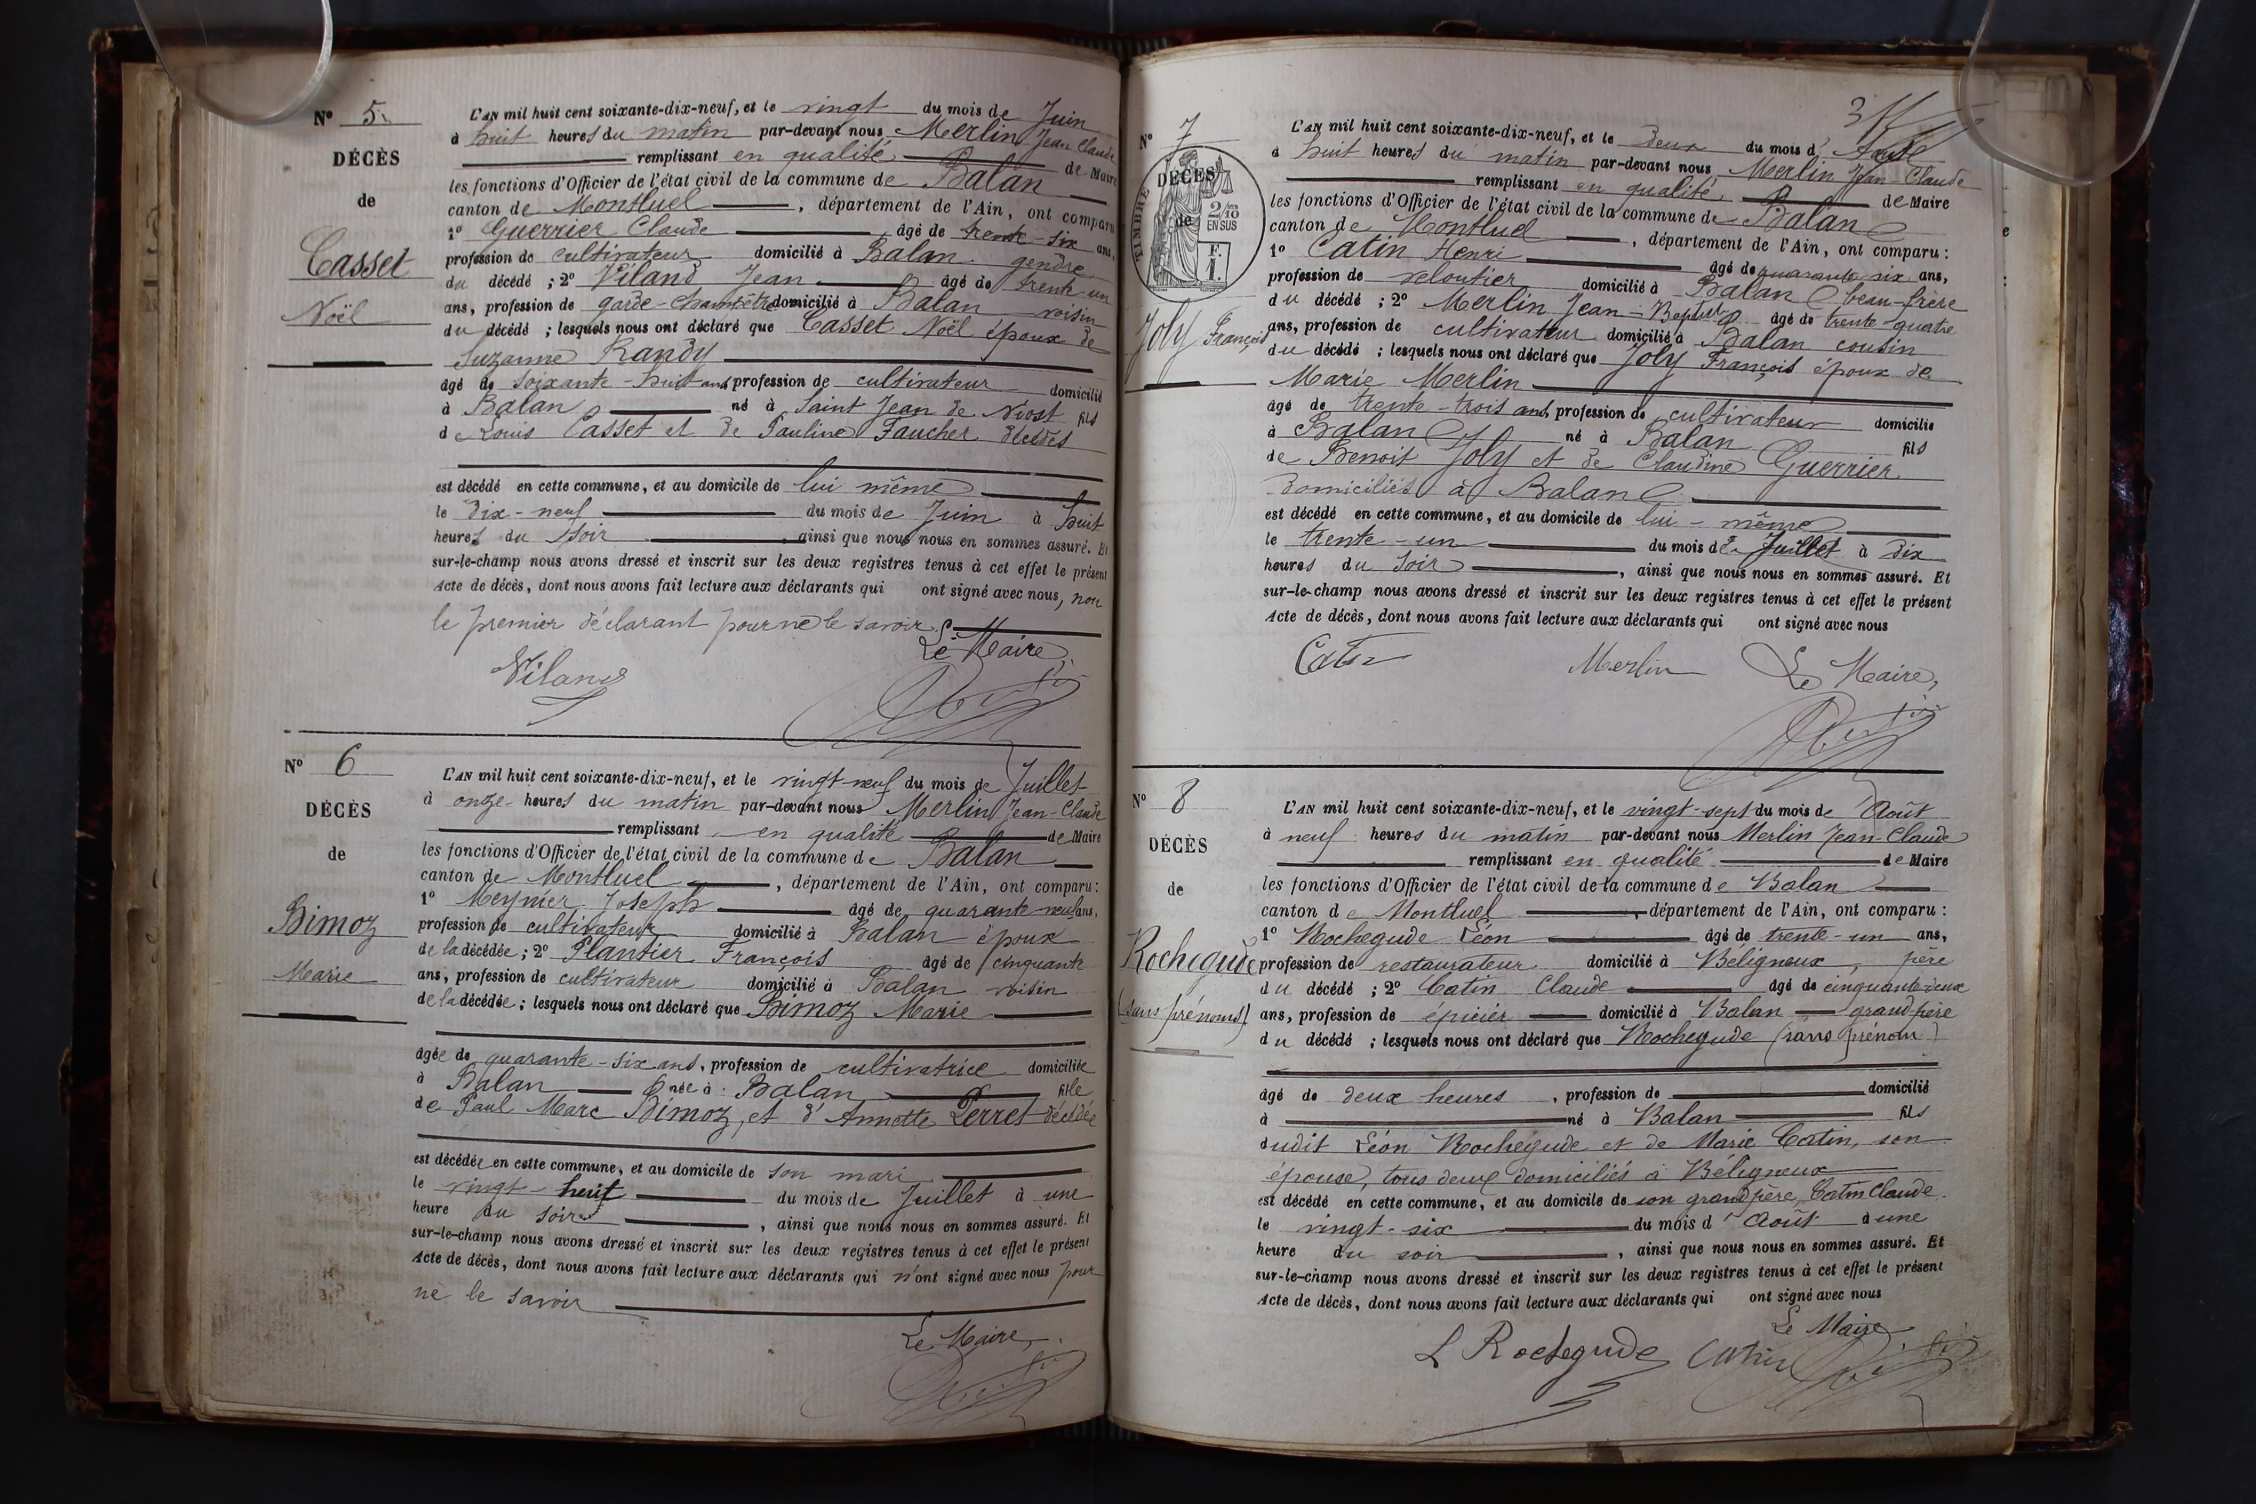 Nº 5
DÉCÈS
de
Casset
Noël
L'AN mil huit cent soixante-dix-neuf, et le vingt du mois de Juin
à huit heures du matin par-devant nous Merlin Jean Claude
remplissant en qualité de Maire
les fonctions d'Officier de l'état civil de la commune de Balan
canton de Montluel, département de l'Ain, ont comparu
1º Guerrier Claude âgé de trente-six ans,
profession de cultivateur domicilié à Balan gendre
du décédé ; 2º Viland Jean âgé de trente-un
ans, profession de garde-champêtre domicilié à Balan voisin
du décédé ; lesquels nous ont déclaré que Casset Noël époux de
Suzanne Randy
âgé de soixante-huit ans profession de cultivateur domicilié
à Balan né à Saint Jean de Niost fils
de Louis Casset et de Pauline Faucher décédés
est décédé en cette commune, et au domicile de lui même
le dix-neuf du mois de Juin à huit
heures du soir ainsi que nous nous en sommes assuré. Et
sur-le-champ nous avons dressé et inscrit sur les deux registres tenus à cet effet le présent
Acte de décès, dont nous avons fait lecture aux déclarants qui ont signé avec nous, non
le premier déclarant pour ne le savoir.
Le Maire,
Viland
Nº 6
DÉCÈS
de
Bimoz
Marie
L'AN mil huit cent soixante-dix-neuf, et le vingt-neuf du mois de Juillet
à onze heures du matin par-devant nous Merlin Jean-Claude
remplissant en qualité de Maire
les fonctions d'Officier de l'état civil de la commune de Balan
canton de Montluel, département de l'Ain, ont comparu :
1º Meynier Joseph âgé de quarante-neuf ans,
profession de cultivateur domicilié à Balan époux
de la décédée ; 2º Plantier François âgé de cinquante
ans, profession de cultivateur domicilié à Balan voisin
de la décédée ; lesquels nous ont déclaré que Bimoz Marie
âgée de quarante-six ans, profession de cultivatrice domiciliée
à Balan née à Balan fille
de Paul Marc Bimoz, et d'Annette Perret décédée
est décédée en cette commune, et au domicile de son mari
le vingt-huit du mois de Juillet à une
heure du soir, ainsi que nous nous en sommes assuré. Et
sur-le-champ nous avons dressé et inscrit sur les deux registres tenus à cet effet le présent
Acte de décès, dont nous avons fait lecture aux déclarants qui n'ont signé avec nous pour
ne le savoir
Le Maire,
Nº 7
DÉCÈS
de
TIMBRE
2/10 EN SUS
F. 1.
Joly François
L'AN mil huit cent soixante-dix-neuf, et le deux du mois d'Août
à huit heures du matin par-devant nous Merlin Jean-Claude
remplissant en qualité de Maire
les fonctions d'Officier de l'état civil de la commune de Balan
canton de Montluel, département de l'Ain, ont comparu :
1º Catin Henri âgé de quarante-six ans,
profession de veloutier domicilié à Balan beau-frère
du décédé ; 2º Merlin Jean-Baptiste âgé de trente-quatre
ans, profession de cultivateur domicilié à Balan cousin
du décédé ; lesquels nous ont déclaré que Joly François époux de
Marie Merlin
âgé de trente-trois ans, profession de cultivateur domicilié
à Balan né à Balan fils
de Benoit Joly et de Claudine Guerrier
domiciliés à Balan
est décédé en cette commune, et au domicile de lui-même
le trente-un du mois de Juillet à dix
heures du soir, ainsi que nous nous en sommes assuré. Et
sur-le-champ nous avons dressé et inscrit sur les deux registres tenus à cet effet le présent
Acte de décès, dont nous avons fait lecture aux déclarants qui ont signé avec nous
Catin Merlin Le Maire,
Nº 8
DÉCÈS
de
Rochegude
(sans prénoms)
L'AN mil huit cent soixante-dix-neuf, et le vingt-sept du mois de Août
à neuf heures du matin par-devant nous Merlin Jean-Claude
remplissant en qualité de Maire
les fonctions d'Officier de l'état civil de la commune de Balan
canton de Montluel, département de l'Ain, ont comparu :
1º Rochegude Léon âgé de trente-un ans,
profession de restaurateur domicilié à Béligneux, père
du décédé ; 2º Catin Claude âgé de cinquante-deux
ans, profession de épicier domicilié à Balan grand-père
du décédé ; lesquels nous ont déclaré que Rochegude (sans prénom)
âgé de deux heures, profession de domicilié
à né à Balan fils
dudit Léon Rochegude et de Marie Catin, son
épouse, tous deux domiciliés à Béligneux
est décédé en cette commune, et au domicile de son grand père, Catin Claude.
le vingt-six du mois d'Août à une
heure du soir, ainsi que nous nous en sommes assuré. Et
sur-le-champ nous avons dressé et inscrit sur les deux registres tenus à cet effet le présent
Acte de décès, dont nous avons fait lecture aux déclarants qui ont signé avec nous
Le Maire
L Rochegude Catin